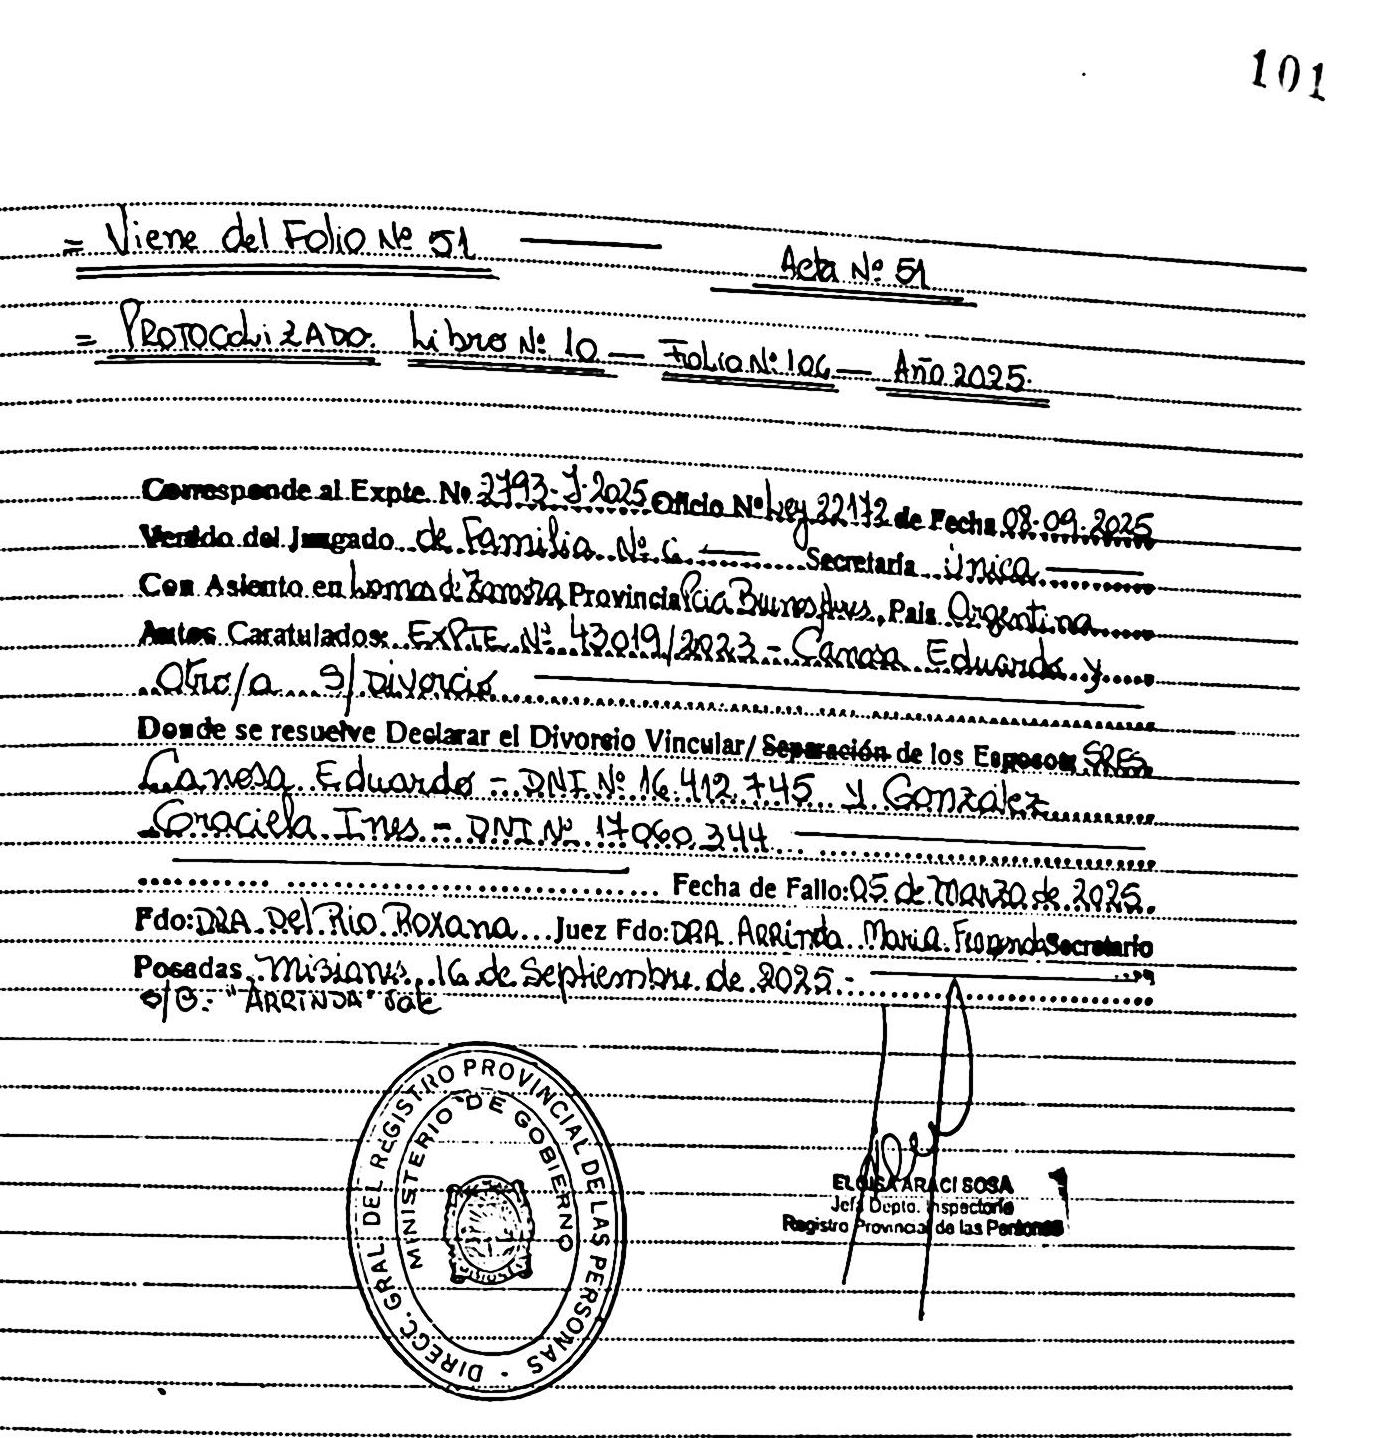 101
= Viene del Folio Nº 51
Acta Nº 51
= PROTOCOLIZADO. Libro Nº 10 — Folio Nº 106 — Año 2025.
Corresponde al Expte Nº 2793-J-2025 Oficio Nº Ley 22172 de Fecha 08-09-2025
Venido del Juzgado de Familia Nº 6 — Secretaría Única
Con Asiento en Lomas de Zamora Provincia Pcia Buenos Aires, País Argentina
Autos Caratulados: EXPTE Nº 43019/2023 - Canosa Eduardo y
Otro/a S/ Divorcio
Donde se resuelve Declarar el Divorcio Vincular/ Separación de los Esposos: SRES
Canosa Eduardo - DNI Nº 16.412.745 y Gonzalez
Graciela Ines - DNI Nº 17060.344
Fecha de Fallo: 05 de Marzo de 2025.
Fdo: DRA. Del Rio Roxana Juez Fdo: DRA Arrinda Maria Fernanda Secretario
Posadas, Misiones, 16 de Septiembre de 2025.-
S/B: "ARRINDA" Vale
DIRECC. GRAL. DEL REGISTRO PROVINCIAL DE LAS PERSONAS
MINISTERIO DE GOBIERNO
ELOISA ARACI SOSA
Jefa Depto. Inspectoría
Registro Provincial de las Personas